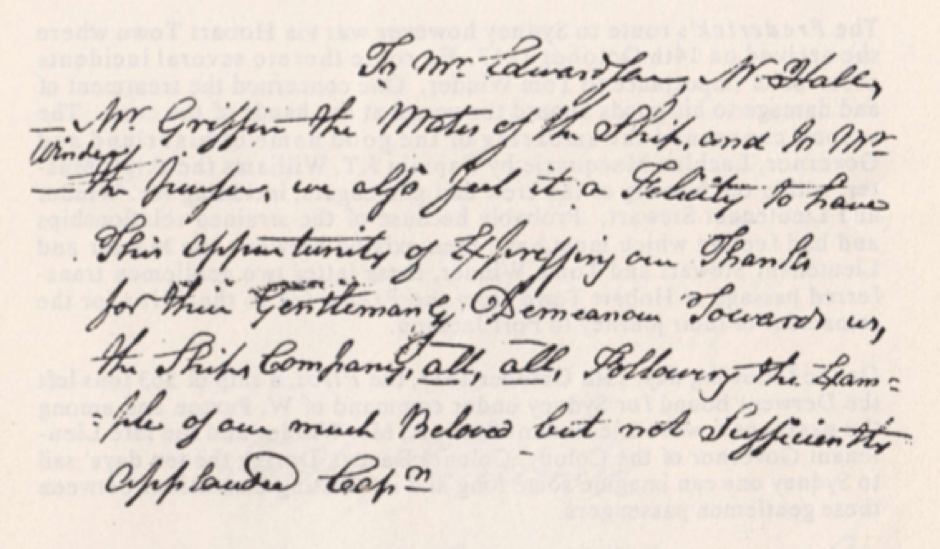 To Mr Edward Lun, Mr Hall,
Mr Griffin the Mates of the Ship, and to Mr
Winder
the Purser, we also feel it a Felicity to have
This Oppertunity of Expressing our Thanks
for their Gentlemany Demeanour Towards us,
the Ships Company, all, all, Following the Exam=
ple of our much Beloved but not Sufficiently
Applauded Capn